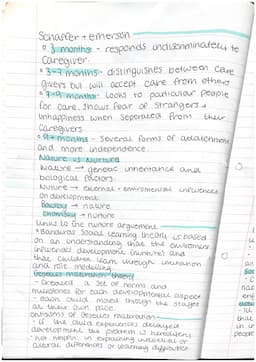 Schaffer + emerson
• 3 months - responds undiscriminately to
Caregiver.
• 3-7 months - distinguishes between care
givers but will accept care from others
• 7-9 months - looks to particular people
for care, show fear of strangers +
unhappiness when seperated from their
caregivers
• 9+ months - Several forms of attatchment
and more independence.
Nature vs Nurture
Nature → genetic inheritance and
biological factors
Nurture → external + enviromental influences
on development.
→ nature
→ nurture
Links to the nurture arguement
• Banduras Social learning theory is based
on an understanding that the enviroment
influences development (nurture) and
that children learn through imitation
and role modelling.
Gesells maturation theory
- Created a set of norms and
milestones for each developmental aspect
- each child moves through the stages
at their own pace.
criticisms of Gesells maturation-
- if the child experiences delayed
development, the problem is hereditary
- not helpful in explaining individual or
cultural differences or learning difficulties